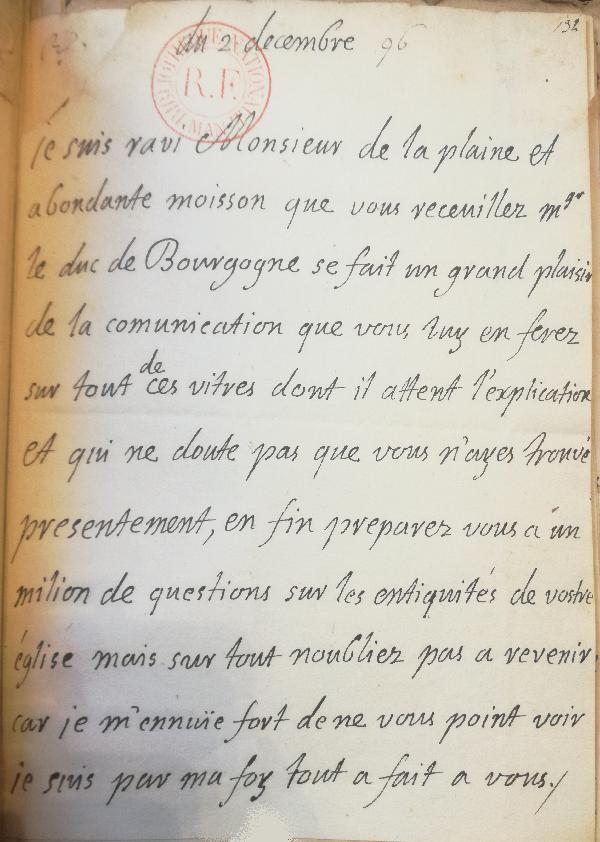 132
du 2 decembre 96
BIBLIOTHEQUE NATIONALE MANUSCRITS
R.F.
je suis ravi Monsieur de la plaine et
abondante moisson que vous receuillez mgr
le duc de Bourgogne se fait un grand plaisir
de la comunication que vous luy en ferez
sur tout de ces vitres dont il attent l'explication
et qui ne doute pas que vous n'ayes trouvé
presentement, en fin preparez vous a un
milion de questions sur les entiquités de vostre
église mais sur tout noubliez pas a revenir
car je m'ennuïe fort de ne vous point voir
je suis par ma foy tout a fait a vous./